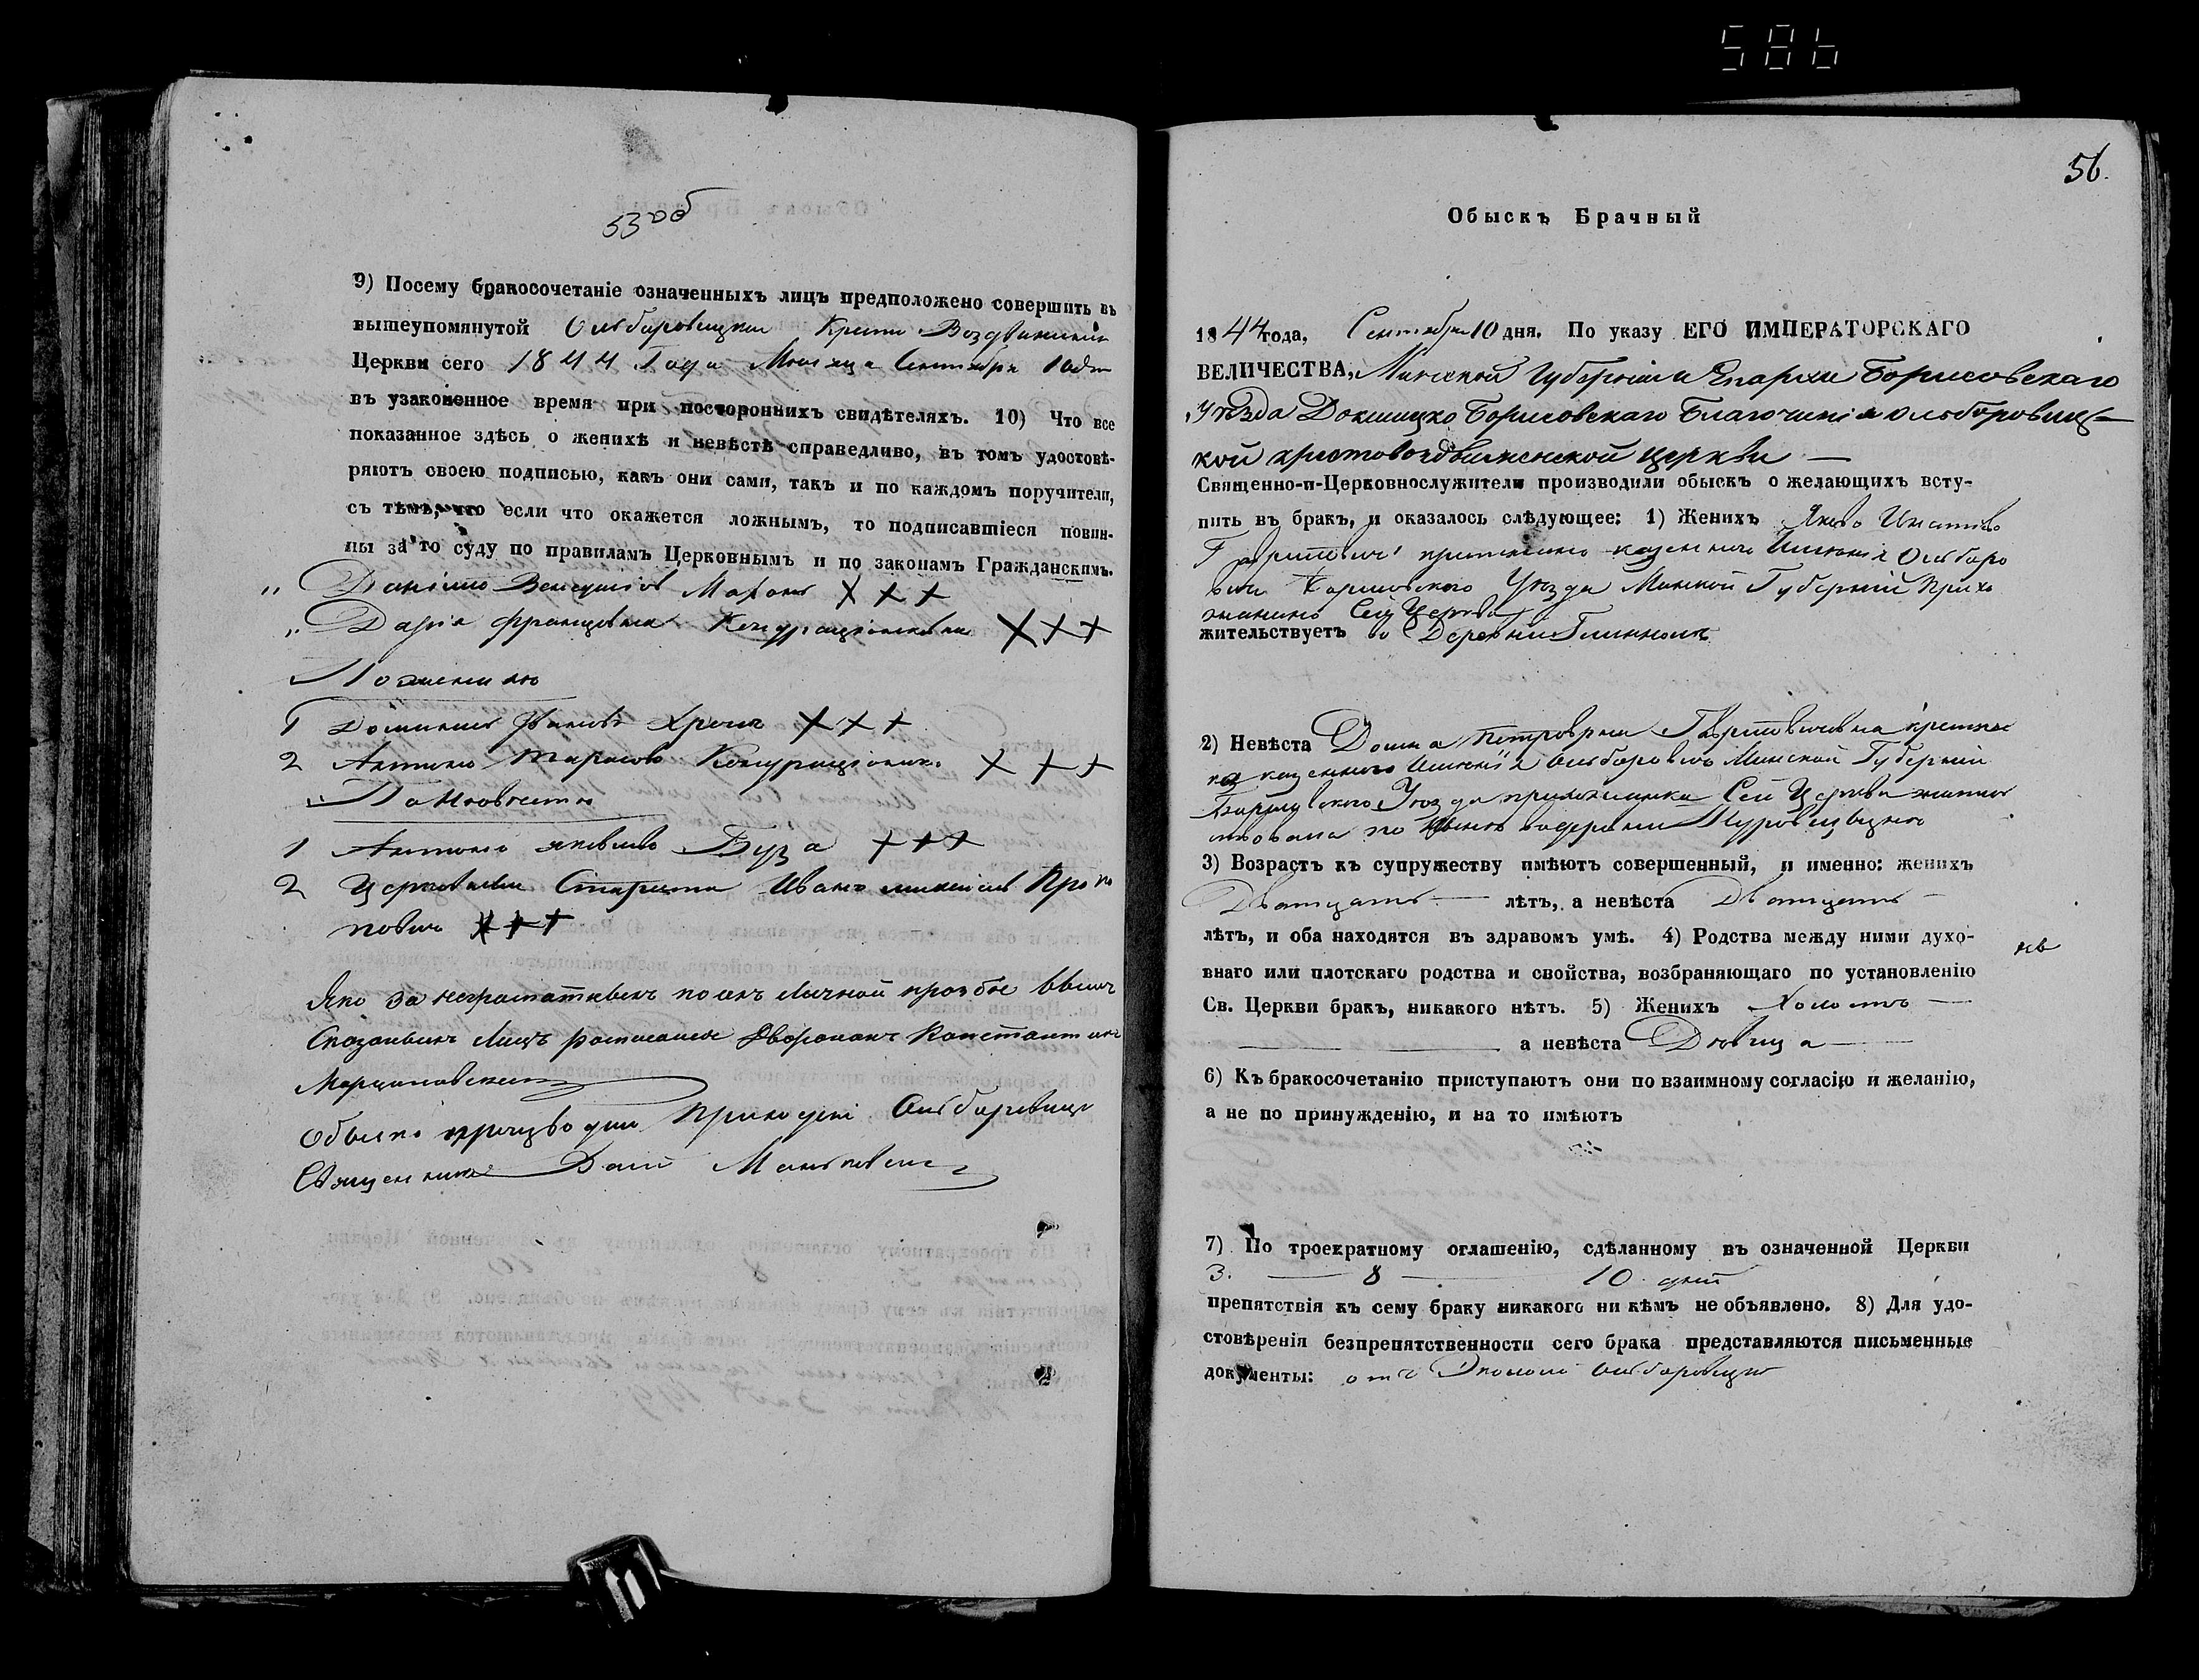 586
53 об
9) Посему бракосочетаніе означенныхъ лицъ предположено совершить въ
вышеупомянутой Ольборовицкой Кресто Воздвиженской
Церкви сего 1844 Года Месяца Сентября 10 дня
въ узаконенное время при постороннихъ свидѣтеляхъ. 10) Что все
показанное здѣсь о женихѣ и невѣстѣ справедливо, въ томъ удостовѣ-
ряютъ своею подписью, какъ они сами, такъ и по каждомъ поручители,
съ тѣмъ, что если что окажется ложнымъ, то подписавшіеся повин-
ны за то суду по правиламъ Церковнымъ и по законамъ Гражданскимъ.
Макаръ ХХХ
Дарія Францовна ХХХ
По женихю
1 Ивановъ ХХХ
2 Антонъ Тарасовъ ХХХ
По Невѣстѣ
1 Антонъ Яковлевъ Буза ХХХ
2 Староста Иванъ Проко
повичъ ХХХ
Яко за неграматныхъ по ихъ личной прозбѣ выше
сказаныхъ лицъ росписался дворонинъ Константинъ
Марциновскій
Обыскъ производилъ Ольборовицкой
Священникъ
56.
Обыскъ Брачный
1844 года, Сентября 10 дня. По указу ЕГО ИМПЕРАТОРСКАГО
ВЕЛИЧЕСТВА, Минской Губерніи и Епархіи Борисовскаго
Уѣзда Докшицко Борисовскаго Благочинія Ольборовиц-
кой крестовоздвиженской церкви —
Священно-и-Церковнослужители производили обыскъ о желающихъ всту-
пить въ бракъ, и оказалось слѣдующее: 1) Женихъ Яковъ Игнатовъ
казеннаго Имѣнія Ольборо
Борисовского Уѣзда Минской Губерніи Прихо
жанинъ Сей Церкви
жительствуетъ въ Деревни
2) Невѣста Домна Петровна Гаврилови
казенного Имѣнія Ольборовичъ Минской Губерніи
Борисовского Уѣзда прихожанка Сей Церкви
3) Возрастъ къ супружеству имѣютъ совершенный, и именно: женихъ
Дватцать — лѣтъ, а невѣста Дватцать —
лѣтъ, и оба находятся въ здравомъ умѣ. 4) Родства между ними духо-
внаго или плотскаго родства и свойства, возбраняющаго по установленію
Св. Церкви бракъ, никакого нѣтъ. 5) Женихъ Холостъ —
а невѣста Дѣвица —
6) Къ бракосочетанію приступаютъ они по взаимному согласію и желанію,
а не по принужденію, и на то имѣютъ
7) По троекратному оглашенію, сдѣланному въ означенной Церкви
3. — 8 — 10. дней
препятствія къ сему браку никакого ни кѣмъ не объявлено. 8) Для удо-
стовѣренія безпрепятственности сего брака представляются письменные
документы: отъ Ольборовицк